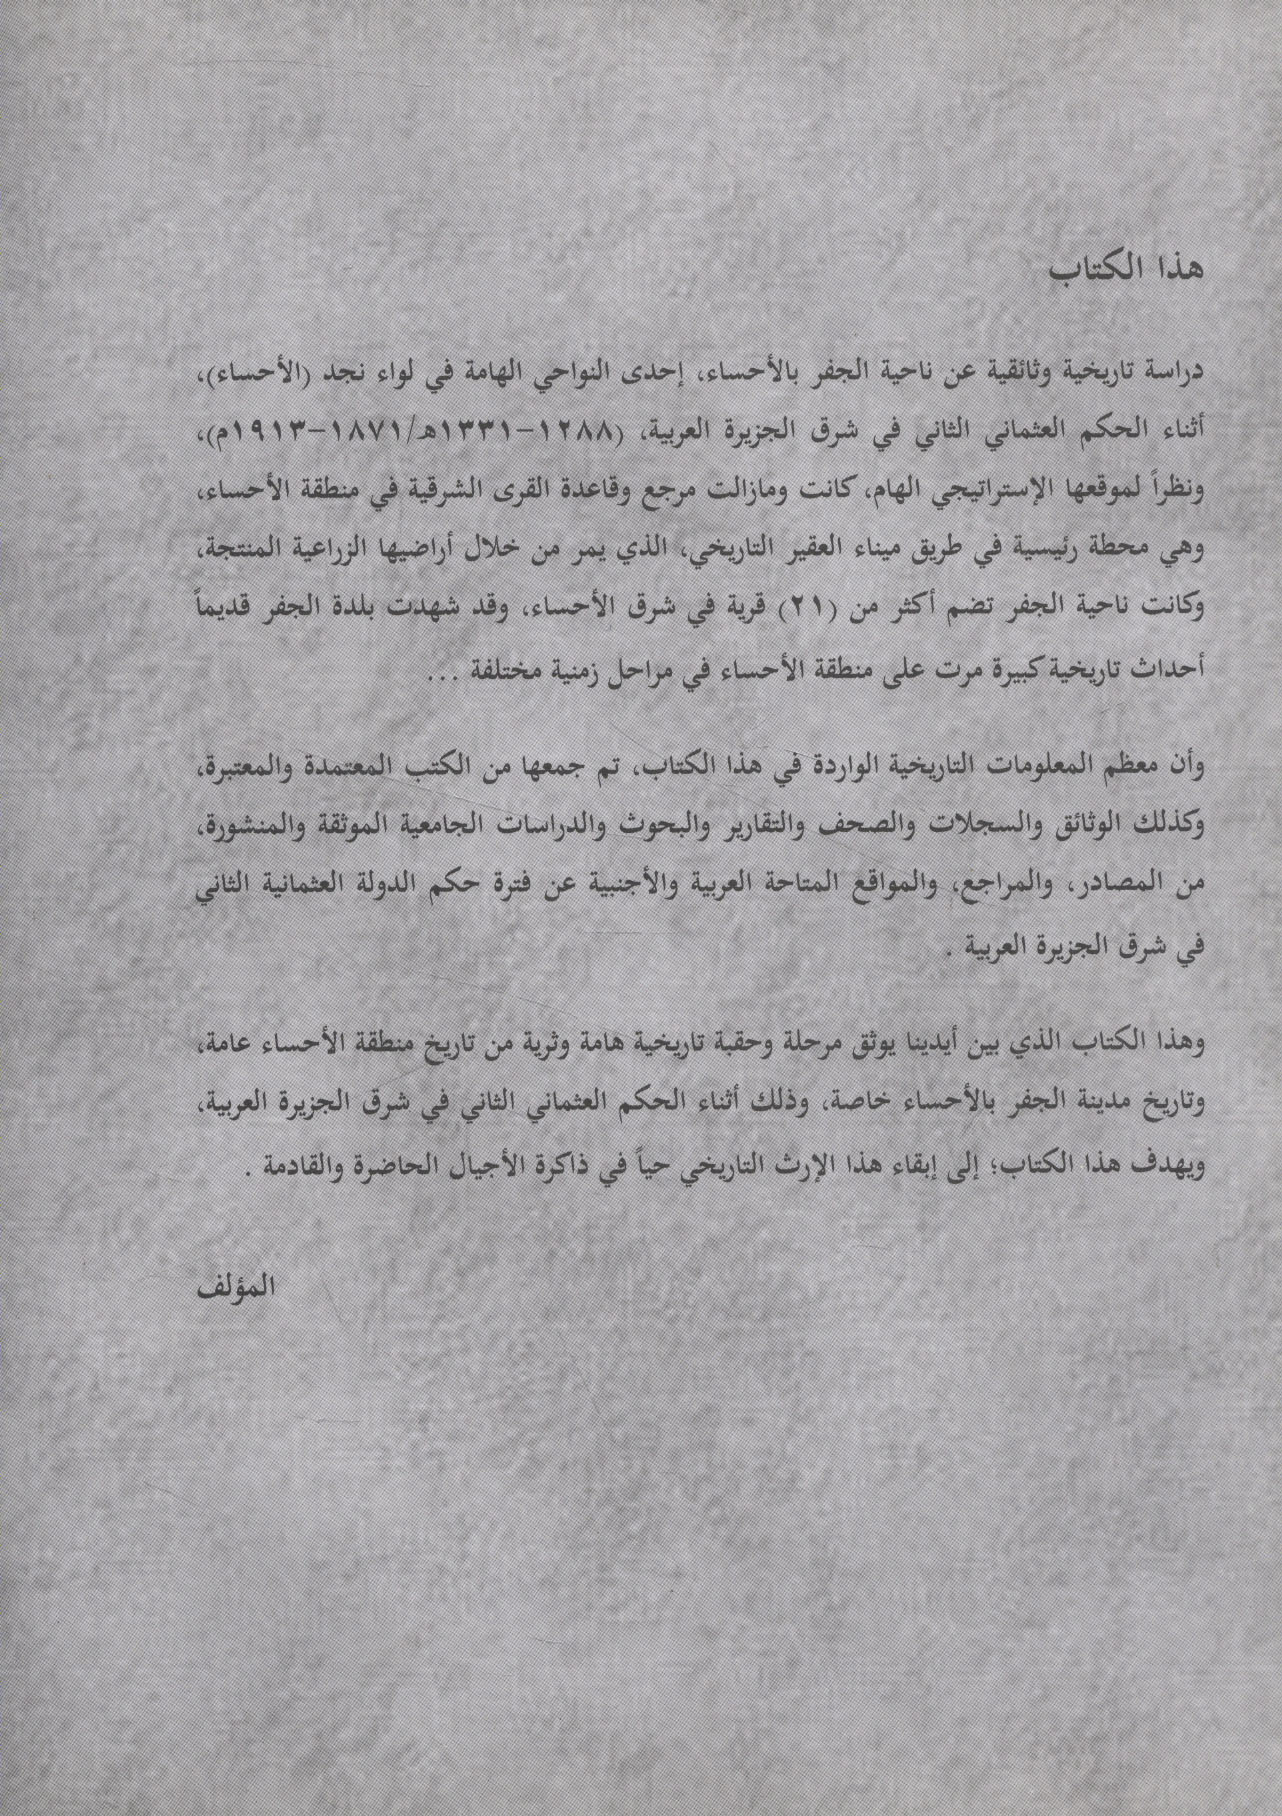 هذا الكتاب
دراسة تاريخية وثائقية عن ناحية الجفر بالأحساء، إحدى النواحي الهامة في لواء نجد (الأحساء)،
أثناء الحكم العثماني الثاني في شرق الجزيرة العربية، (١٢٨٨-١٣٣١هـ/١٨٧١-١٩١٣م)،
ونظراً لموقعها الإستراتيجي الهام، كانت ومازالت مرجع وقاعدة القرى الشرقية في منطقة الأحساء،
وهي محطة رئيسية في طريق ميناء العقير التاريخي، الذي يمر من خلال أراضيها الزراعية المنتجة،
وكانت ناحية الجفر تضم أكثر من (٢١) قرية في شرق الأحساء، وقد شهدت بلدة الجفر قديماً
أحداث تاريخية كبيرة مرت على منطقة الأحساء في مراحل زمنية مختلفة ...
وأن معظم المعلومات التاريخية الواردة في هذا الكتاب، تم جمعها من الكتب المعتمدة والمعتبرة،
وكذلك الوثائق والسجلات والصحف والتقارير والبحوث والدراسات الجامعية الموثقة والمنشورة،
من المصادر، والمراجع، والمواقع المتاحة العربية والأجنبية عن فترة حكم الدولة العثمانية الثاني
في شرق الجزيرة العربية .
وهذا الكتاب الذي بين أيدينا يوثق مرحلة وحقبة تاريخية هامة وثرية من تاريخ منطقة الأحساء عامة،
وتاريخ مدينة الجفر بالأحساء خاصة، وذلك أثناء الحكم العثماني الثاني في شرق الجزيرة العربية،
ويهدف هذا الكتاب؛ إلى إبقاء هذا الإرث التاريخي حياً في ذاكرة الأجيال الحاضرة والقادمة .
المؤلف